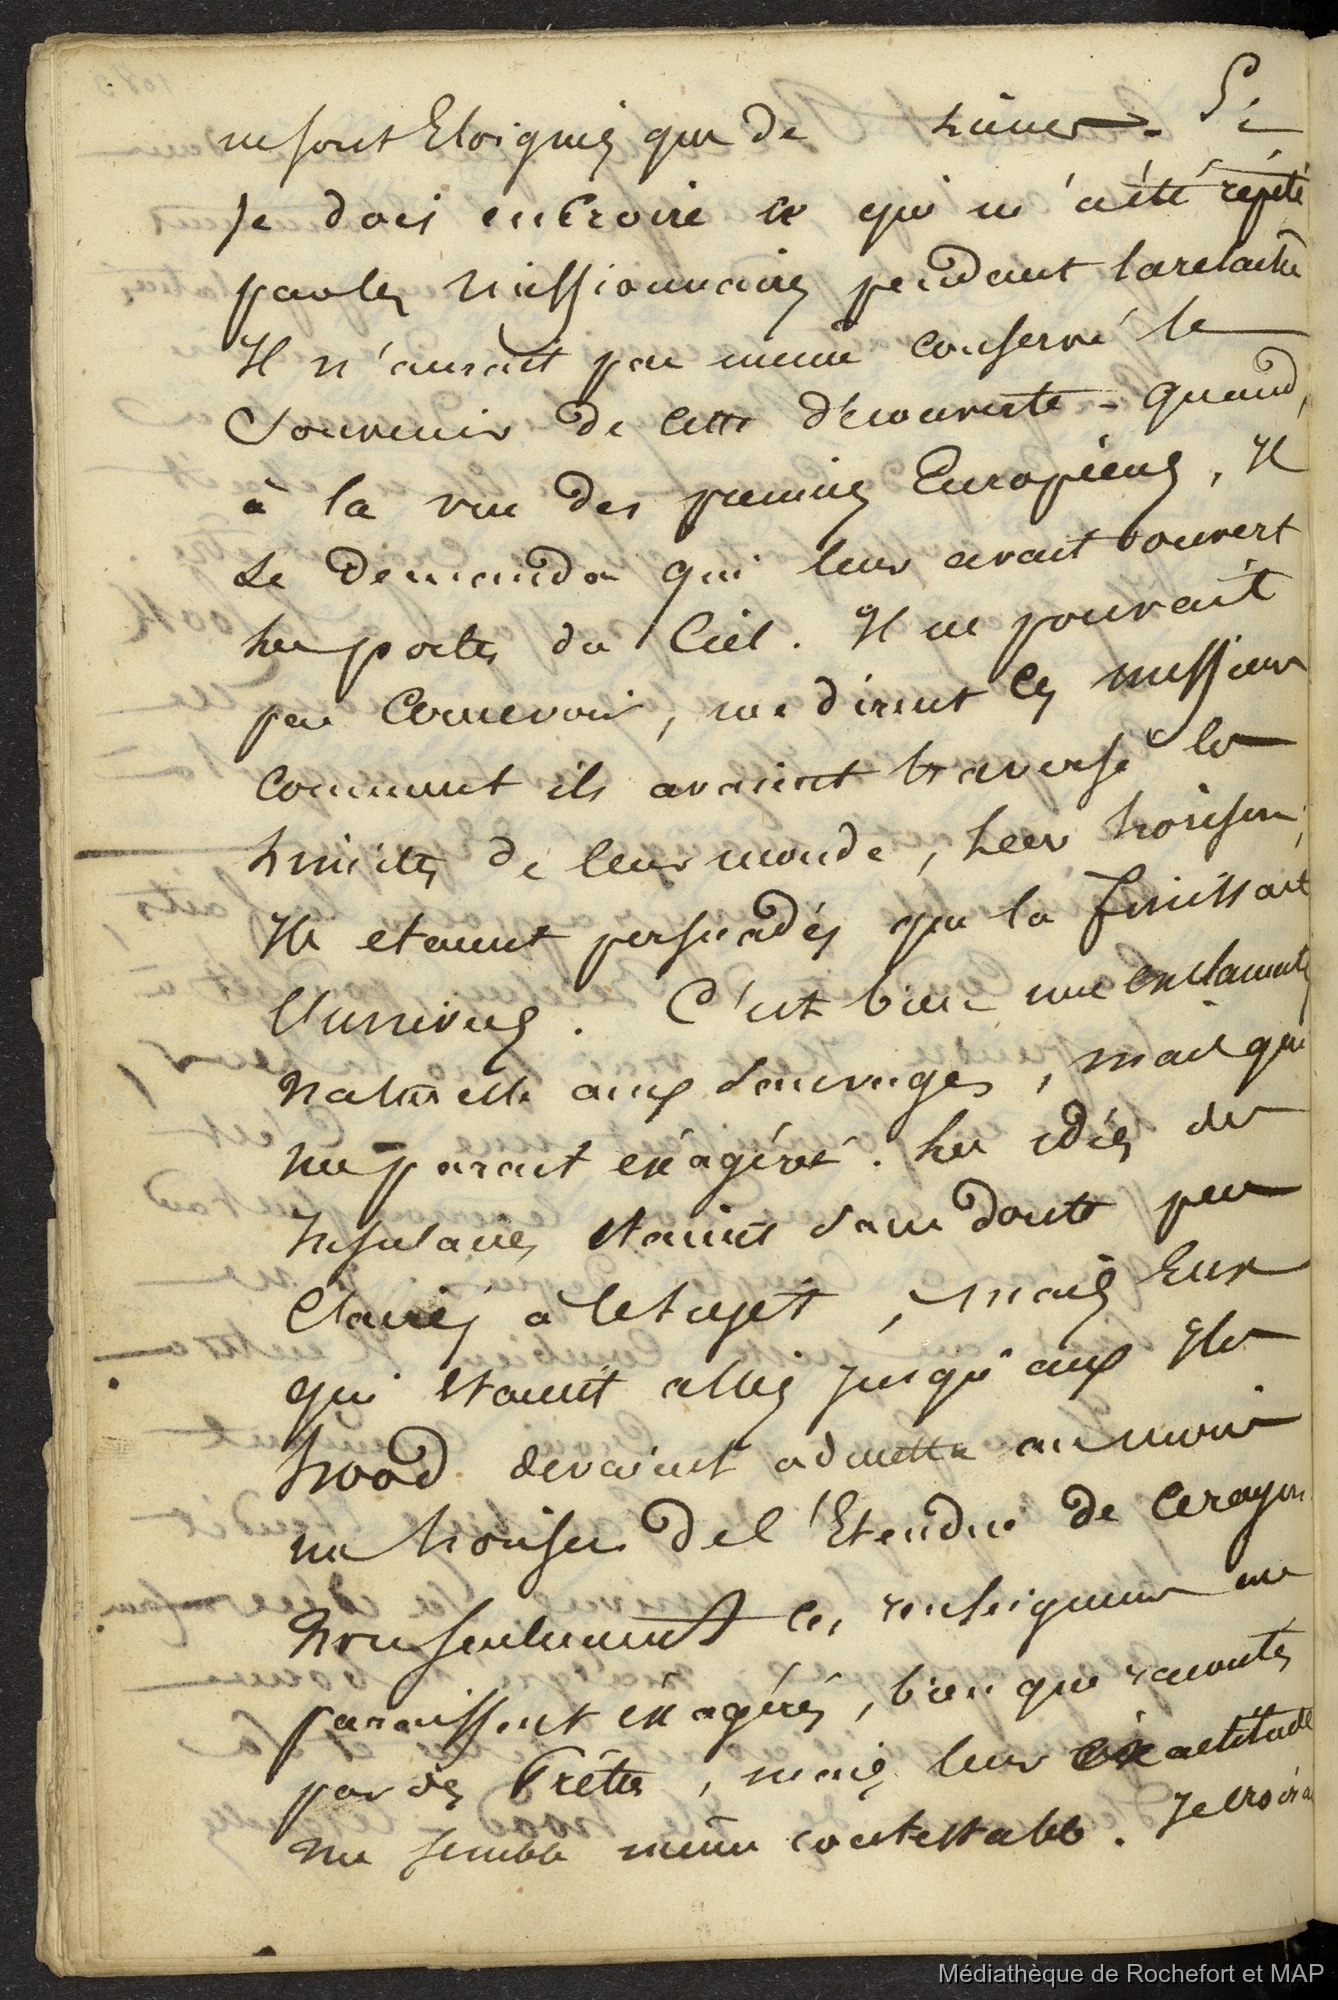 ne sont Eloignés que de lieues. Si
Je dois en croire ce qui m'a été répété
par les Missionnaires pendant la relache
Il n'aurait pas meme conservé le
Souvenir de cette découverte - quand,
à la vue des premiers Européens, Il
se demanda qui leur avait ouvert
les portes du Ciel. Il ne pouvait
pas Concevoir, me dirent Ces messieurs
comment ils avaient traversé les
limites de leur monde, leur horison,
Ils etaient persuadés que la finissait
l'univers. C'est bien une
naturelle aux Sauvages, mais qui
me parait exagéré. Les idées des
Insulaires etaient sans doute peu
Claires à ce sujet, mais Eux
qui etaient allés jusqu'aux Iles
hood devaient admettre au moins
un horison de l'Etendue de ce rayon
Non seulement ces renseignemens me
paraissent exagérés, bien que racontés
par des Prêtres, mais leur exactitude
me semble même contestable. Je croirai
Médiathèque de Rochefort et MAP